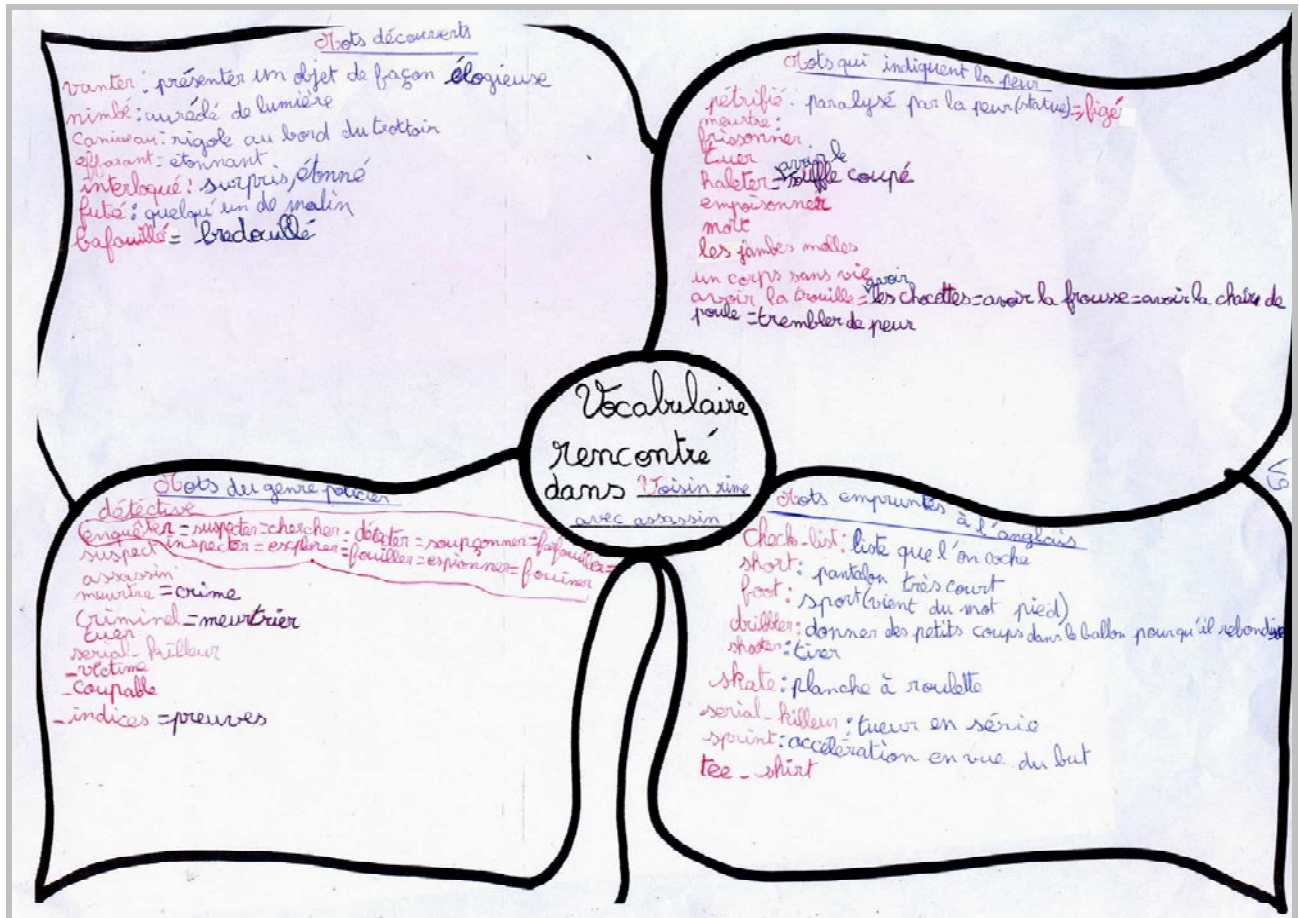 Mots découverts
vanter : présenter un objet de façon élogieuse
nimbé : aurédé de lumière
caniveau : rigole au bord du trottoir
effarant = étonnant
interloqué : surpris, étonné
futé : quelqu'un de malin
bafouillé = bredouillé
Mots qui indiquent la peur
pétrifié : paralysé par la peur (statue) => figé
meurtre :
frissonner
tuer
haleter = avoir le souffle coupé
empoisonner
mort
les jambes molles
un corps sans vie
avoir la trouille = avoir les chocottes = avoir la frousse = avoir la chaire de
poule = trembler de peur
Vocabulaire
rencontré
dans Voisin rime
avec assassin
Mots du genre policier
détective
enquêter = suspecter = chercher = détecter = soupçonner = farfouiller =
inspecter = explorer = fouiller = espionner = fouiner
suspect
assassin
meurtre = crime
criminel = meurtrier
tuer
serial-killeur
-victime
-coupable
-indices = preuves
Mots empruntés à l'anglais
check-list : liste que l'on coche
short : pantalon très court
foot : sport (vient du mot pied)
dribbler : donner des petits coups dans le ballon pour qu'il rebondisse
shooter : tirer
skate : planche à roulette
serial-killeur : tueur en série
sprint : accélération en vue du but
tee-shirt